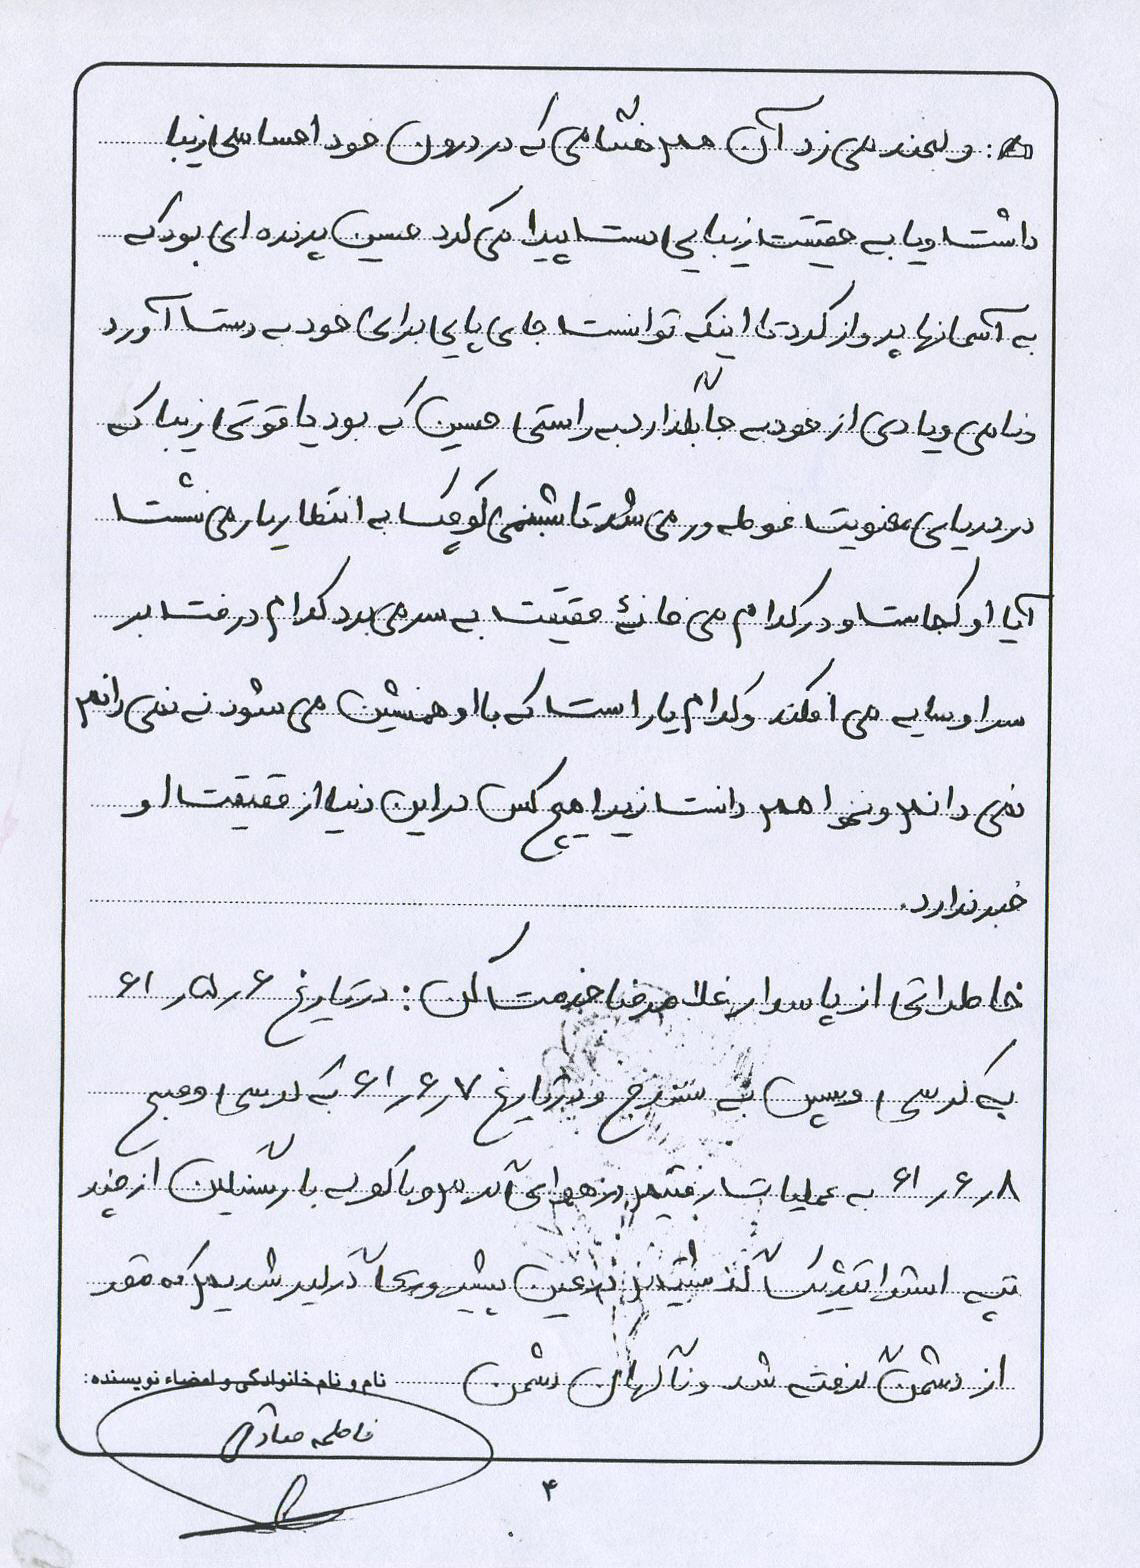 : و لبخند می زد آن هم هنگامی که در درون خود احساسی زیبا
داشت و یا به حقیقت زیبایی دست پیدا می کرد حسین پرنده ای بود که
به آسمانها پرواز کرد تا اینکه توانست جای پایی برای خود به دست آورد
و نامی و یادی از خود به جا بگذارد به راستی حسین که بود یاقوتی زیبا که
در دریای معنویت غوطه ور می شد تا شبنمی کوچک به انتظار یار می نشست
آیا او کجاست و در کدام می خانهٔ حقیقت به سر می برد کدام درخت بر
سر او سایه می افکند و کدام یار است که با او همنشین می شود نه نمی دانم
نمی دانم و نخواهم دانست زیرا هیچ کس در این دنیا از حقیقت او
خبر ندارد.
خاطراتی از پاسدار غلامرضا خدمت کن: در تاریخ ۶ر۵ر۶۱
به کردسی و سپس به سنندج و در تاریخ ۷ر۶ر۶۱ به کردسی و صبح
۸ر۶ر۶۱ به عملیات رفتیم در هوای گرم و با کوله بار سنگین از چند
تپه استراتژیک گذشتیم در عین پیشروی درگیر شدیم که مقر
از دشمن گرفته شد و ناگهان دشمن
نام و نام خانوادگی و امضاء نویسنده:
فاطمه صادقی
۴